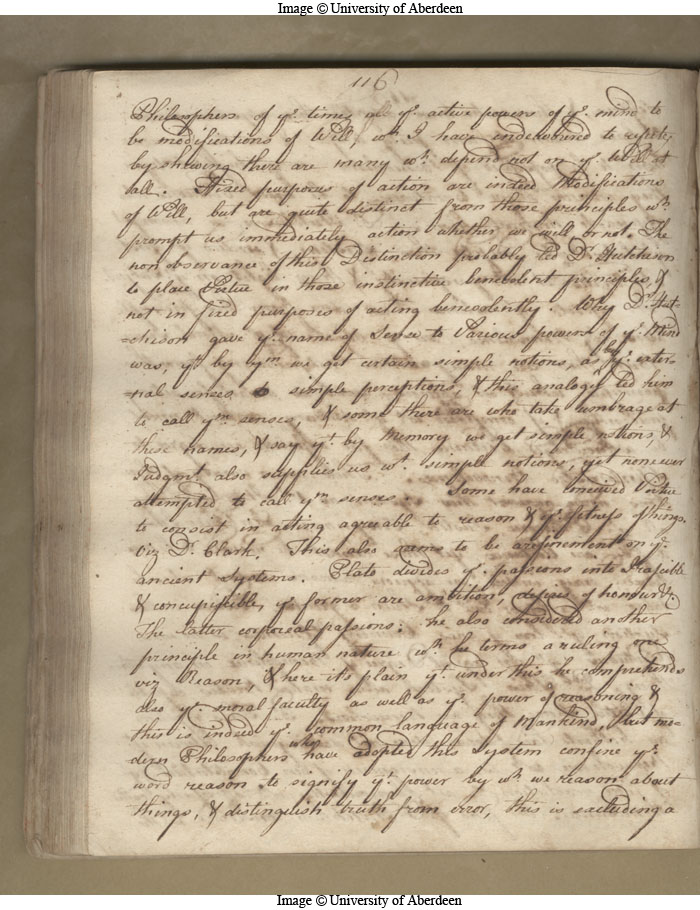 Image © University of Aberdeen
116
Philosophers of ye. times all ye. active powers of ye. mind to
be modifications of Will, wh. I have endeavoured to refute,
by shewing there are many wh. depend not on ye. Will at
all. Fixed purposes of action are indeed Modifications
of Will, but are quite distinct from those principles wh.
prompt us immediately action whether we will or not. The
non observance of this Distinction probably led Dr. Hutchison
to place Virtue in those instinctive benevolent principles, &
not in fixed purposes of acting benevolently. Why Dr. Hut
=chison gave ye. name of Sense to Various powers of ye. Mind
was, yt. by ym. we get certain simple notions, as by ye. exter-
=nal senses simple perceptions, & this analogy led him
to call ym. senses, & some there are who take umbrage at
these names, & say yt. by Memory we get simple notions, &
Judgmt. also supplies us wt. simple notions, yet none ever
attempted to call ym senses. Some have conceived Virtue
to consist in acting agreable to reason & ye. fitness of things.
Viz Dr. Clark. This also seems to be a refinement on ye.
ancient Systems. Plato divides ye. passions into Irascible
& concupiscible, ye. former are ambition, desires of honour &c.
The latter corporeal passions: he also considered another
principle in human nature wh. he terms a ruling one
viz Reason, & here its plain yt. under this he comprehends
also ye. moral faculty as well as ye. power of reasoning &
this is indeed ye. common language of Mankind, but mo-
dern Philosophers who have adopted this System confine ye.
word reason to signify yt. power by wh. we reason about
things, & distinguish truth from error, this is excluding a
Image © University of Aberdeen